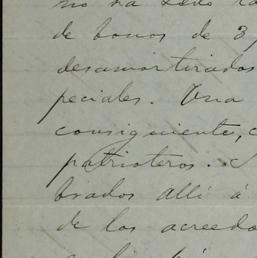 no ha sido
de bonos de 3
desamortizados
peciales. Una
consiguiente, c
patrioteros.
brados allí á
de los acreedo